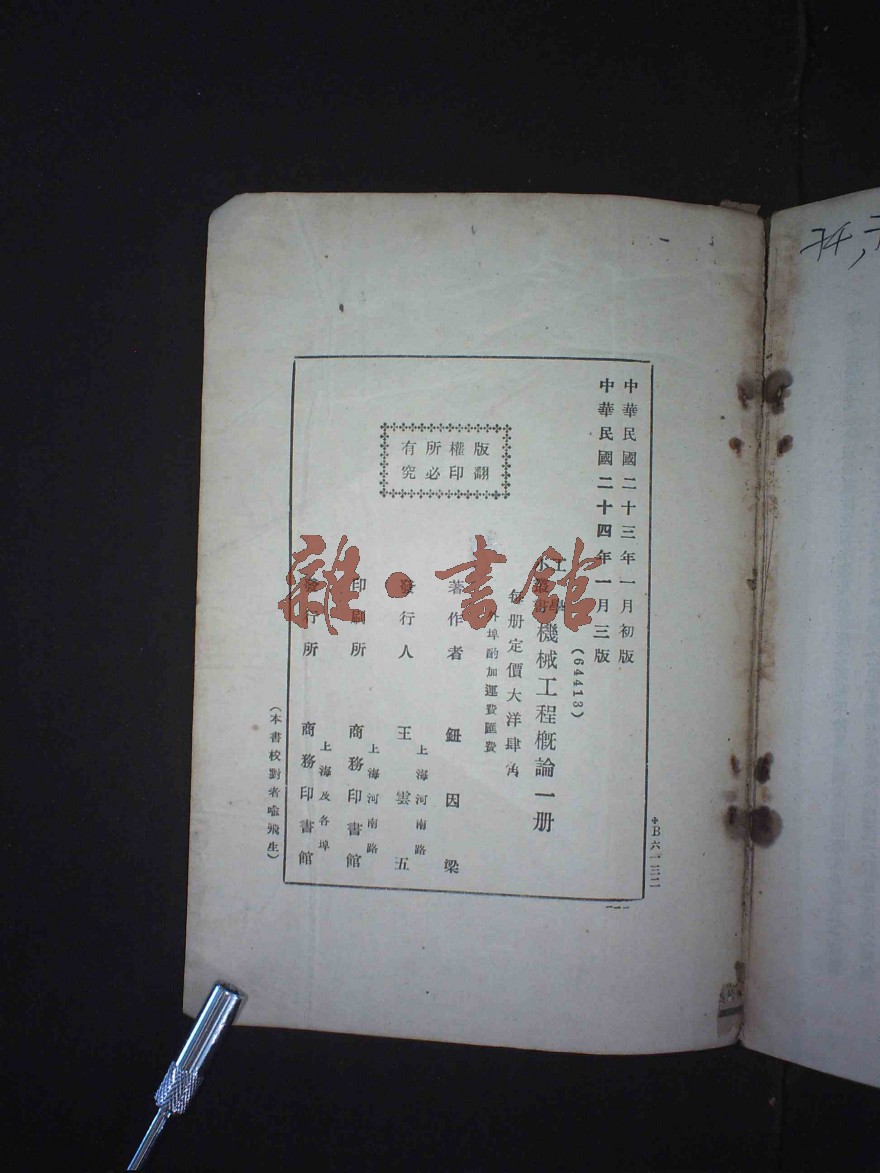 中華民國二十三年一月初版
中華民國二十四年一月三版
(64413)
工學
小叢書
機械工程概論一册
每册定價大洋肆角
外埠酌加運費匯費
版權所有
翻印必究
著作者 鈕因梁
發行人 王雲五
上海河南路
印刷所 商務印書館
上海河南路
發行所 商務印書館
上海及各埠
(本書校對者喩飛生)
雜·書館